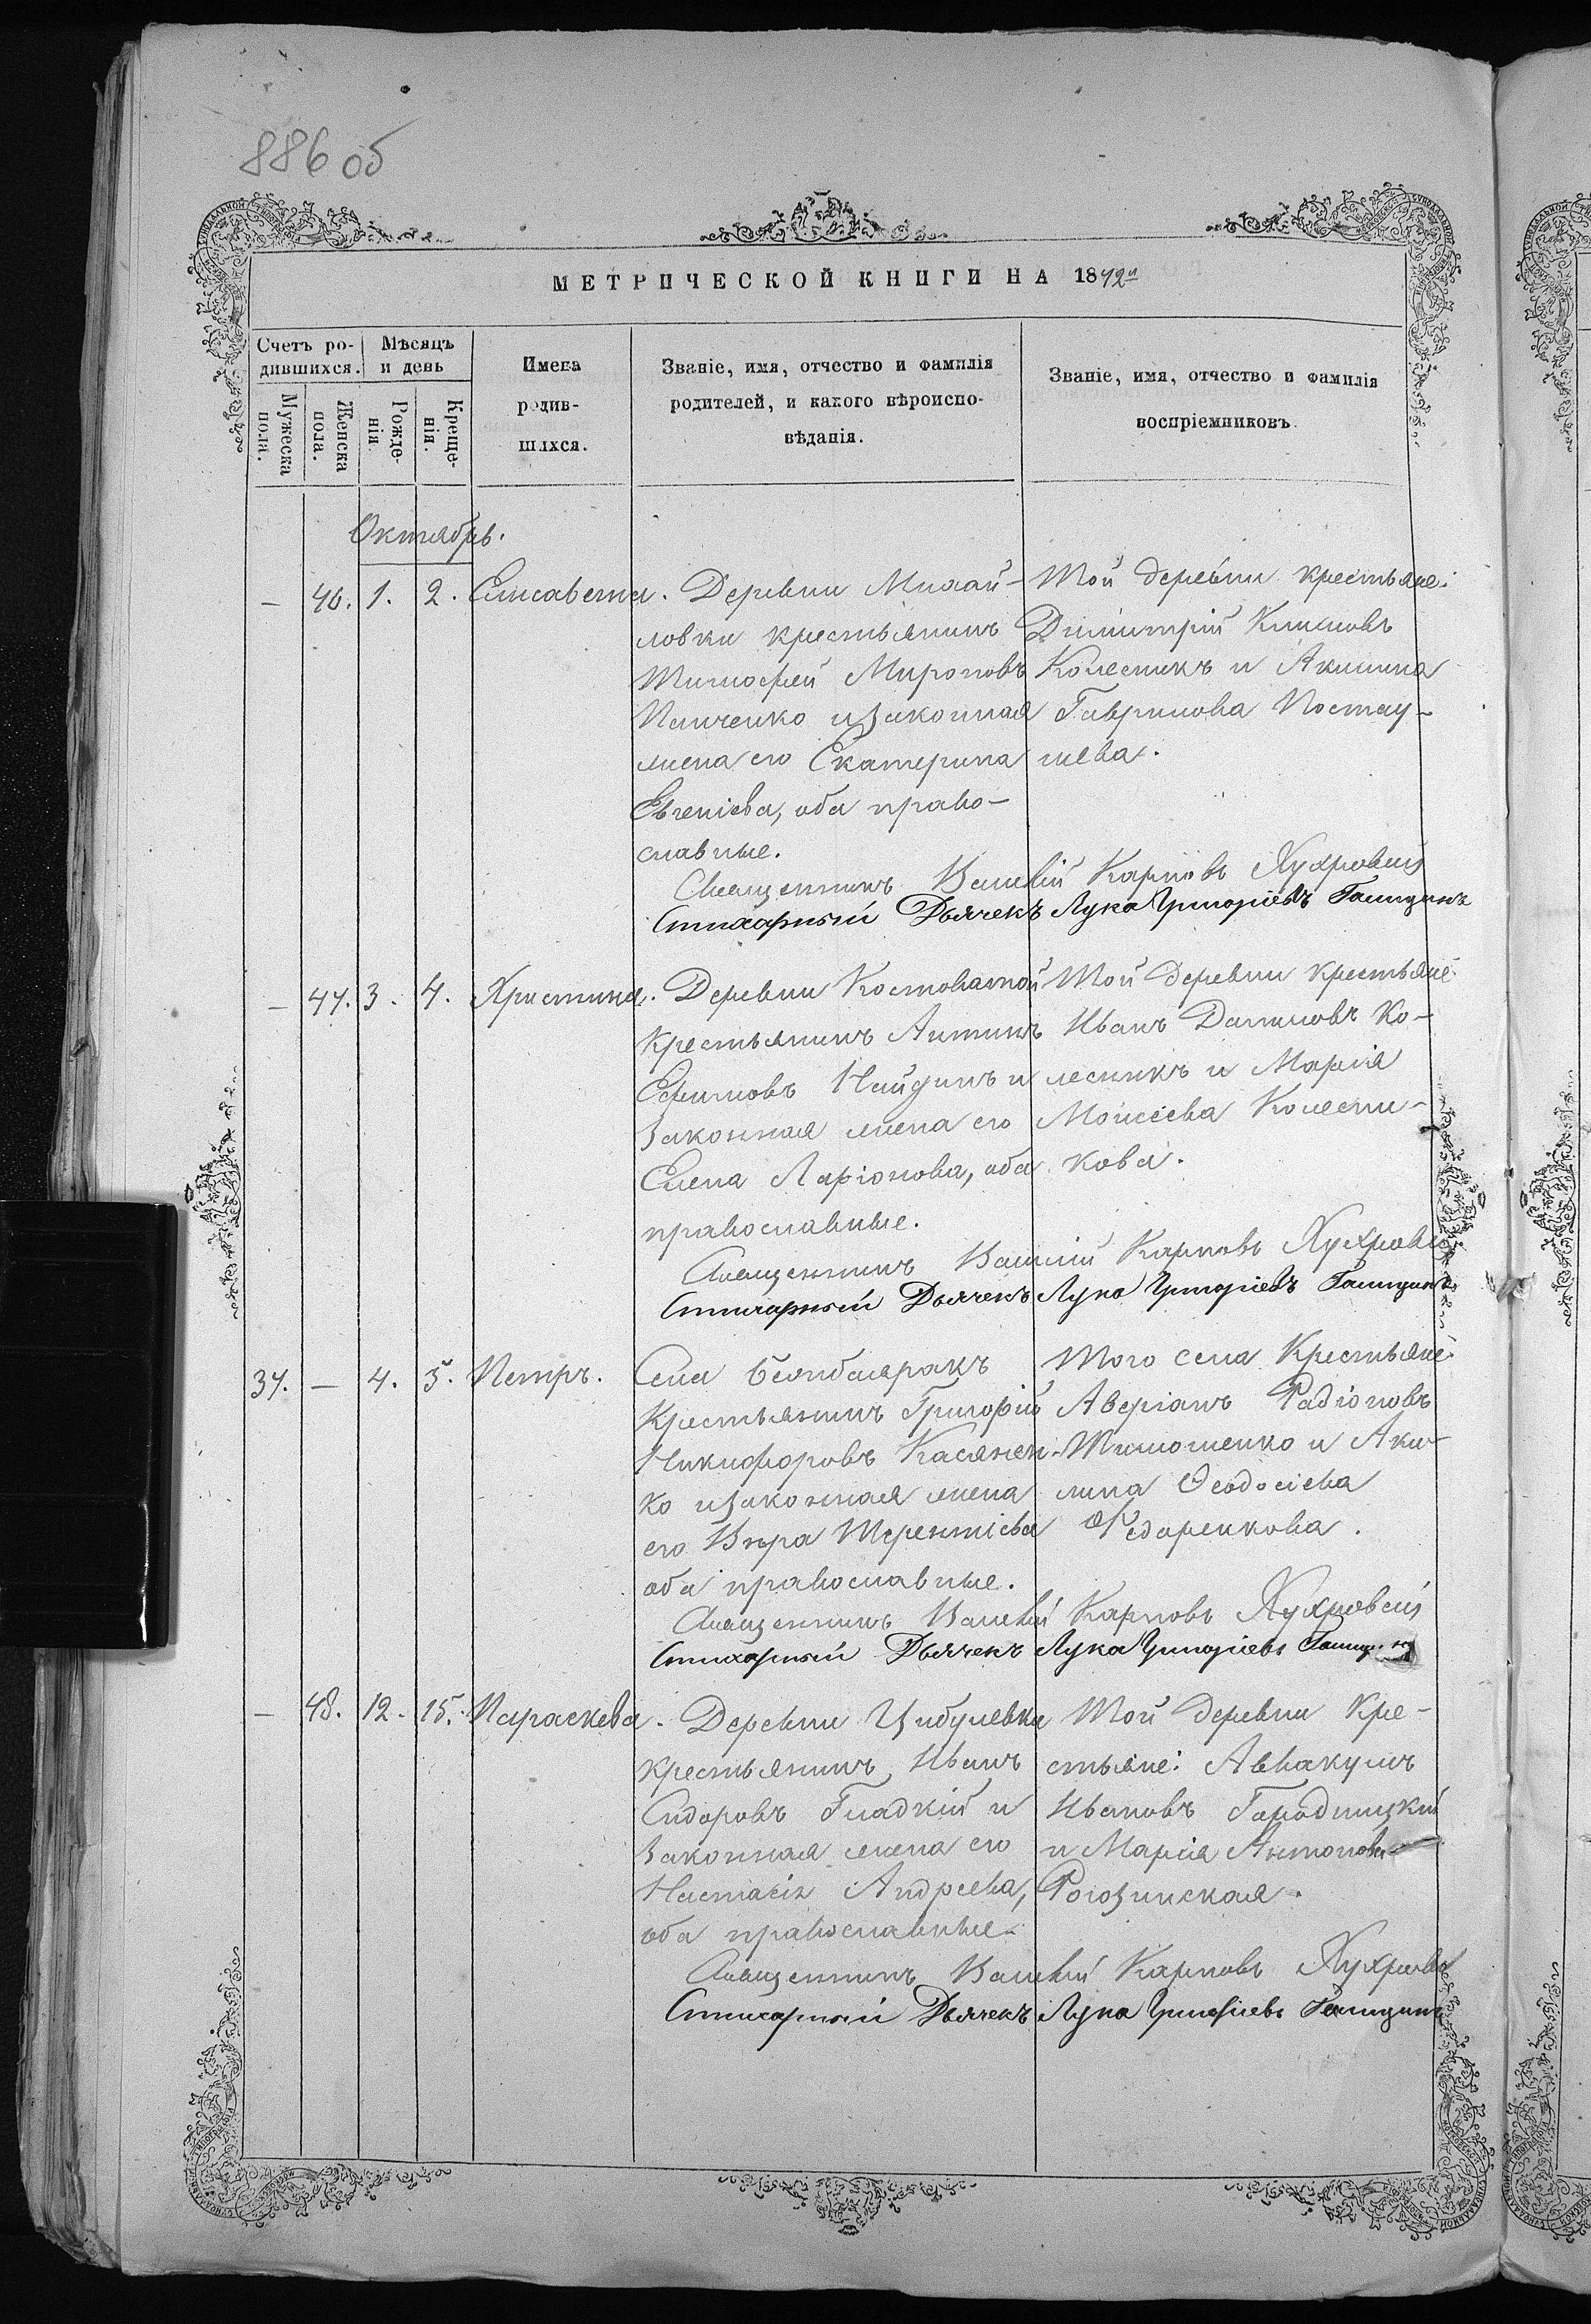 886 об
МЕТРИЧЕСКОЙ КНИГИ НА 1872й
Счетъ ро-
дившихся.
Мѣсяцъ
и день
Имена
родив-
шихся.
Званіе, имя, отчество и фамилія
родителей, и какого вѣроиспо-
вѣданія.
Званіе, имя, отчество и фамилія
воспріемниковъ.
Мужеска
пола.
Женска
пола.
Рожде-
нія.
Креще-
нія.
Октябрь.
— 46. 1. 2. Елисавета.
Деревни Михай-
ловки крестьянинъ
Тимофей Мироновъ
Панченко и законная
жена его Екатерина
Евгеніева, оба право-
славные.
Той деревни крестьяне:
Димитрій Климовъ
Колесникъ и Акилина
Гаврилова
Священникъ Василій Карповъ
Стихарный Дьячекъ Лука Григоріевъ
— 47. 3. 4. Христина.
Деревни Костоватой
крестьянинъ Антинъ
Ефимовъ Найдинъ и
законная жена его
Елена Ларіонова, оба
православные.
Той деревни крестьяне
Иванъ Даниловъ Ко-
лесникъ и Марія
Моисеева Колесни-
кова.
Священникъ Василій Карповъ
Стихарный Дьячекъ Лука Григоріевъ
37. — 4. 5. Петръ.
Села
Крестьянинъ Григорій
Никифоровъ Касянен-
ко и законная жена
его Вѣра Терентіева
оба православные.
Того села Крестьяне:
Аверіанъ Радіоновъ
Тимошенко и Аки-
лина Ѳеодосіева
Федоренкова.
Священникъ Василій Карповъ
Стихарный Дьячекъ Лука Григоріевъ
— 48. 12. 15. Параскева.
Деревни Цибулевки
крестьянинъ Иванъ
Сидоровъ Гладкій и
законная жена его
Настасія Андреева,
оба православные.
Той деревни Кре-
стьяне: Аввакумъ
Ивановъ Городницкій
и Марія Антонова
Рогозинская.
Священникъ Василій Карповъ
Стихарный Дьячекъ Лука Григоріевъ